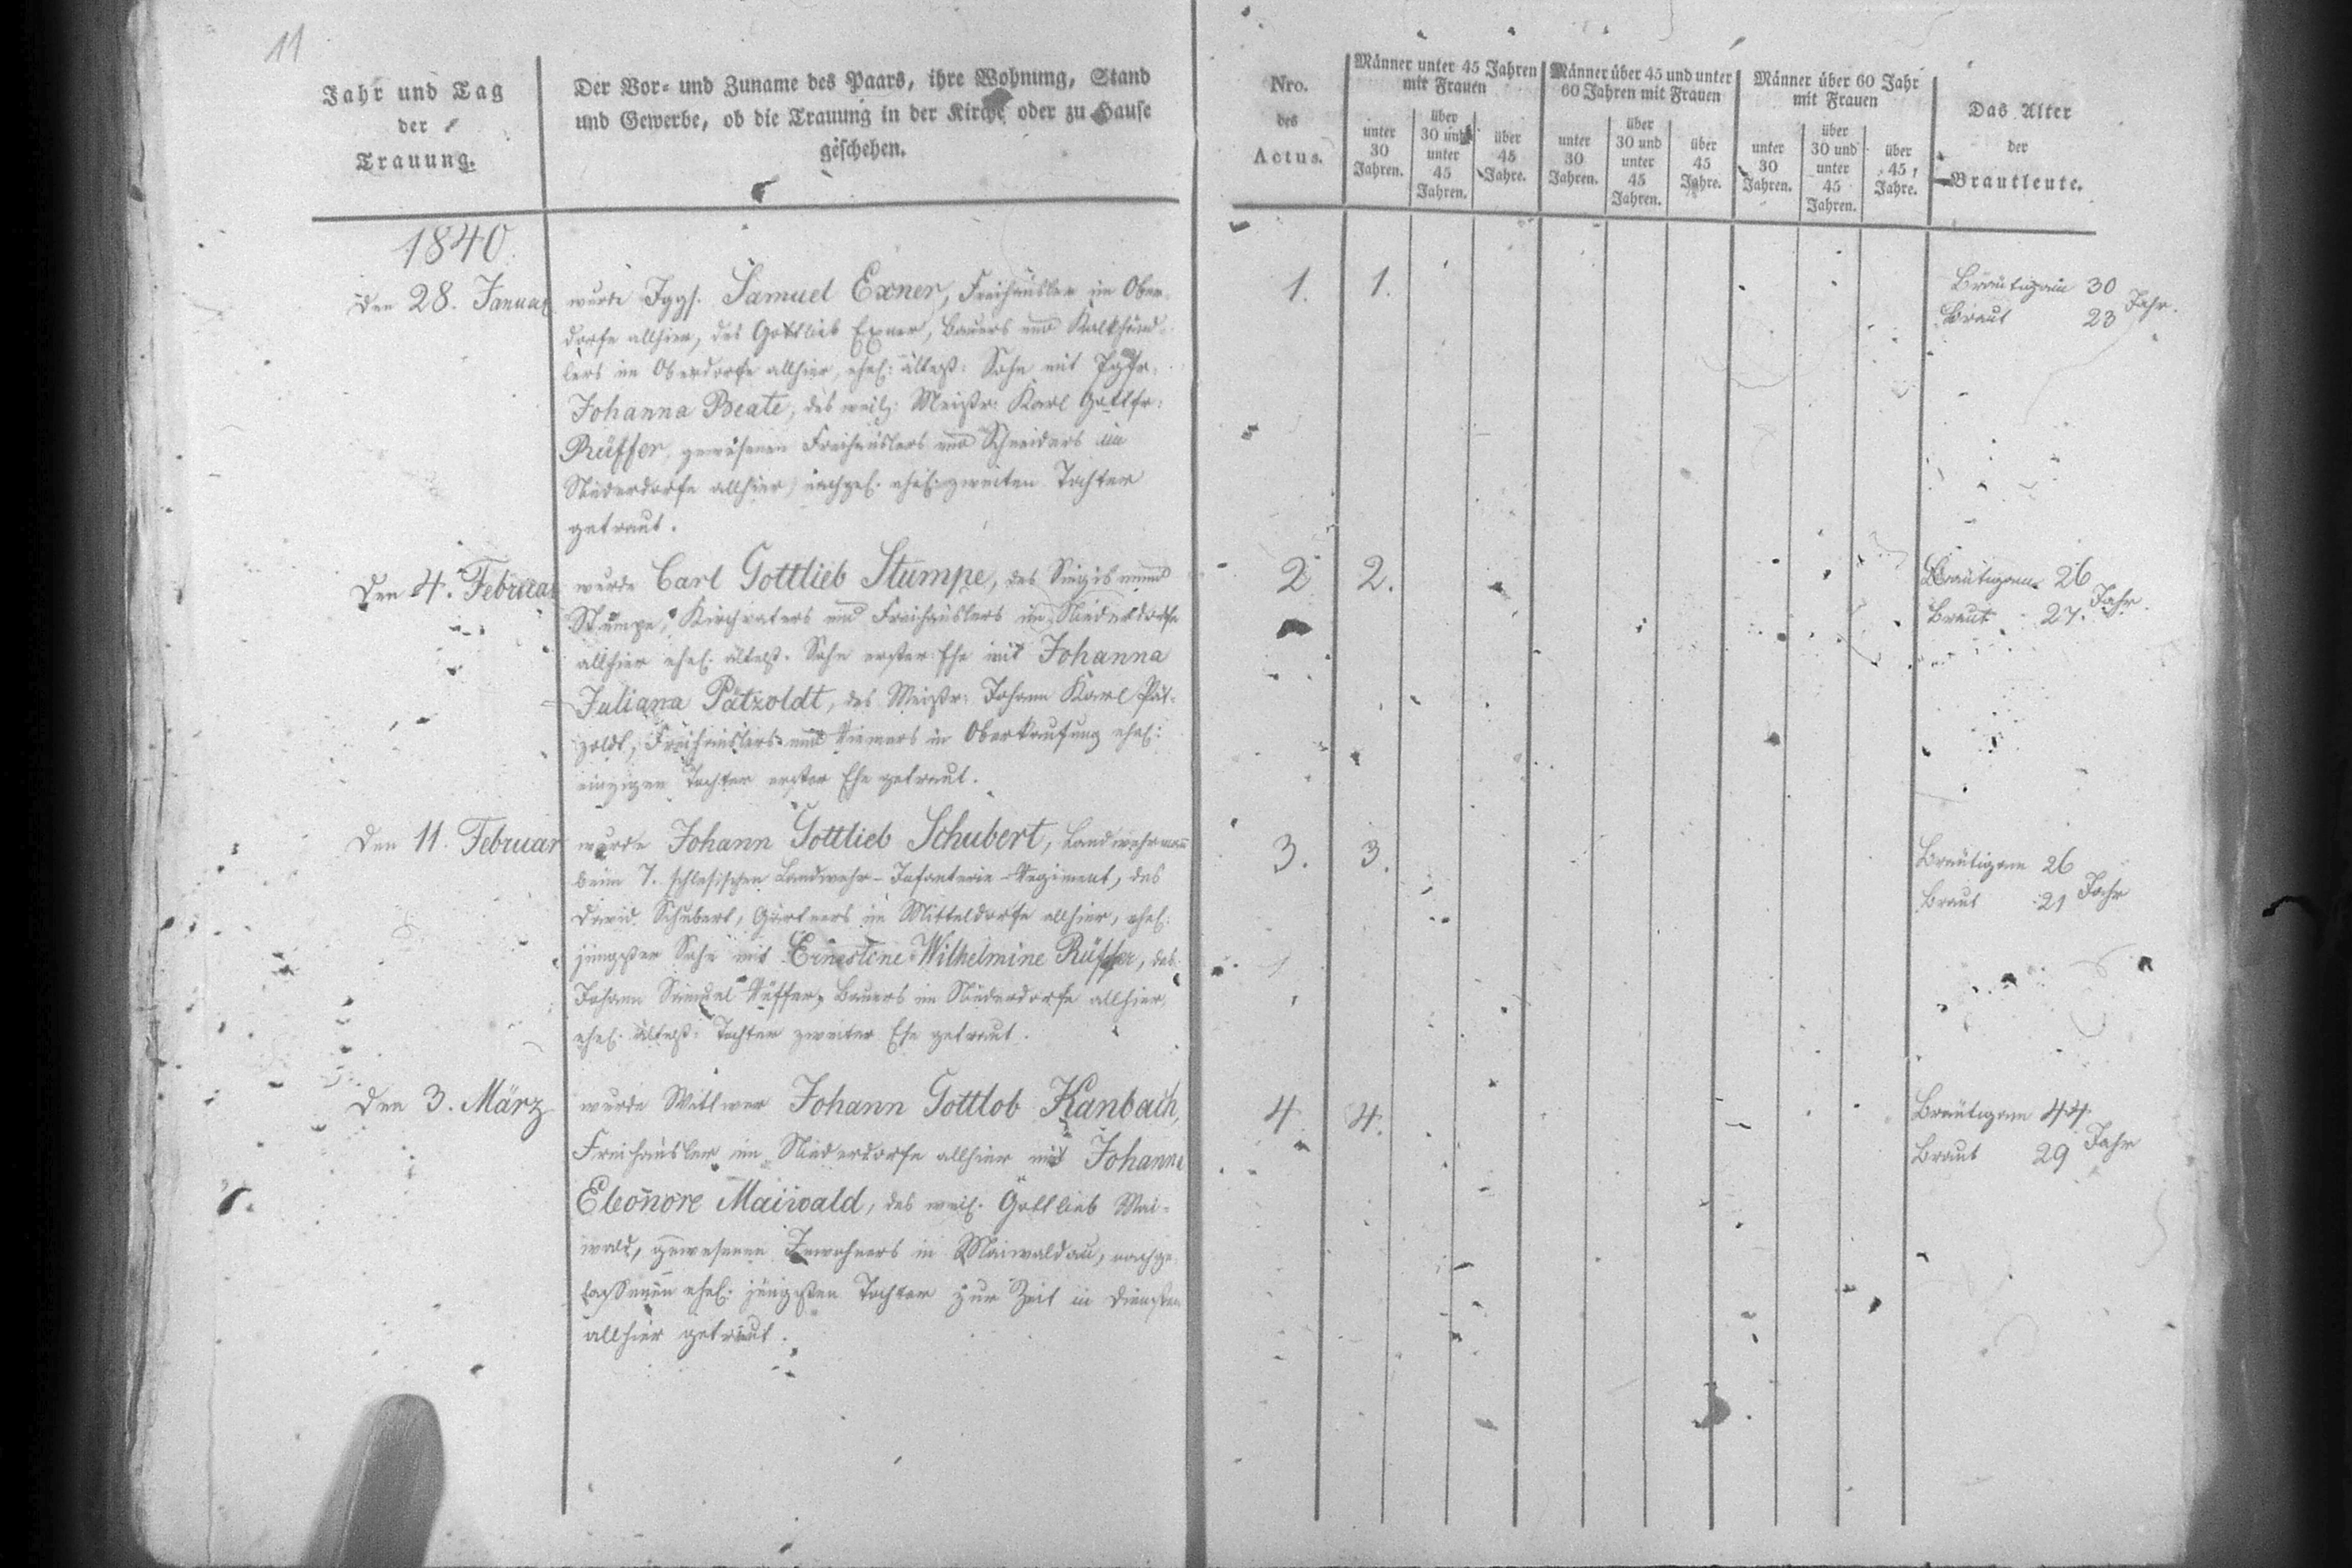 11
Jahr und Tag
der
Trauung.
Der Vor- und Zuname des Paars, ihre Wohnung, Stand
und Gewerbe, ob die Trauung in der Kirche oder zu Hause
geschehen.
Nro.
des
Actus.
Männer unter 45 Jahren
mit Frauen
unter
30
Jahren.
über
30 und
unter
45
Jahren.
über
45
Jahre.
Männer über 45 und unter
60 Jahren mit Frauen
unter
30
Jahren.
über
30 und
unter
45
Jahren.
über
45
Jahre.
Männer über 60 Jahr
mit Frauen
unter
30
Jahren.
über
30 und
unter
45
Jahren.
über
45
Jahre.
Das Alter
der
Brautleute.
1840.
Den 28. Januar
wurde Jggs. Samuel Exner, Freihäusler im Ober-
dorfe allhier, des Gottlieb Exner, Bauers und Kalkhänd-
lers im Oberdorfe allhier, ehel: ältest: Sohn mit Jgfr.
Johanna Beate, des weil: Meistr: Karl Gottfr:
Rüffer, gewesenen Freihäuslers und Schneiders im
Niederdorfe allhier, nachgel. ehel: zweiten Tochter
getraut.
1. 1.
Bräutigam 30
Braut 23 Jahr.
Den 4. Februar
wurde Carl Gottlieb Stumpe, des Siegismund
Stumpe, Kirchvaters und Freihäuslers im Niederdorfe
allhier ehel. ältest. Sohn erster Ehe mit Johanna
Juliana Pätzoldt, des Meistr: Johann Karl Pät-
zoldt, Freihäuslers und Riemers in Oberkaufung ehel:
einzigen Tochter erster Ehe getraut.
2 2.
Bräutigam 26
Braut 27. Jahr.
Den 11. Februar
wurde Johann Gottlieb Schubert, Landwehrmann
beim 7. schlesischen Landwehr-Infanterie-Regiment, des
David Schubert, Gärtners im Mitteldorfe allhier, ehel.
jüngster Sohn mit Ernestine Wilhelmine Rüffer, des
Johann Samuel Rüffer, Bauers im Niederdorfe allhier,
ehel. ältest: Tochter zweiter Ehe getraut.
3. 3.
Bräutigam 26
Braut 21 Jahr
Den 3. März
wurde Wittwer Johann Gottlob Kanbach,
Freihäusler im Niederdorfe allhier mit Johanne
Eleonore Maiwald, des weil. Gottlieb Mai-
wald, gewesenen Inwohners in Maiwaldau, nachge-
lassenen ehel: jüngsten Tochter zur Zeit in Diensten
allhier getraut.
4 4.
Bräutigam 44
Braut 29 Jahr